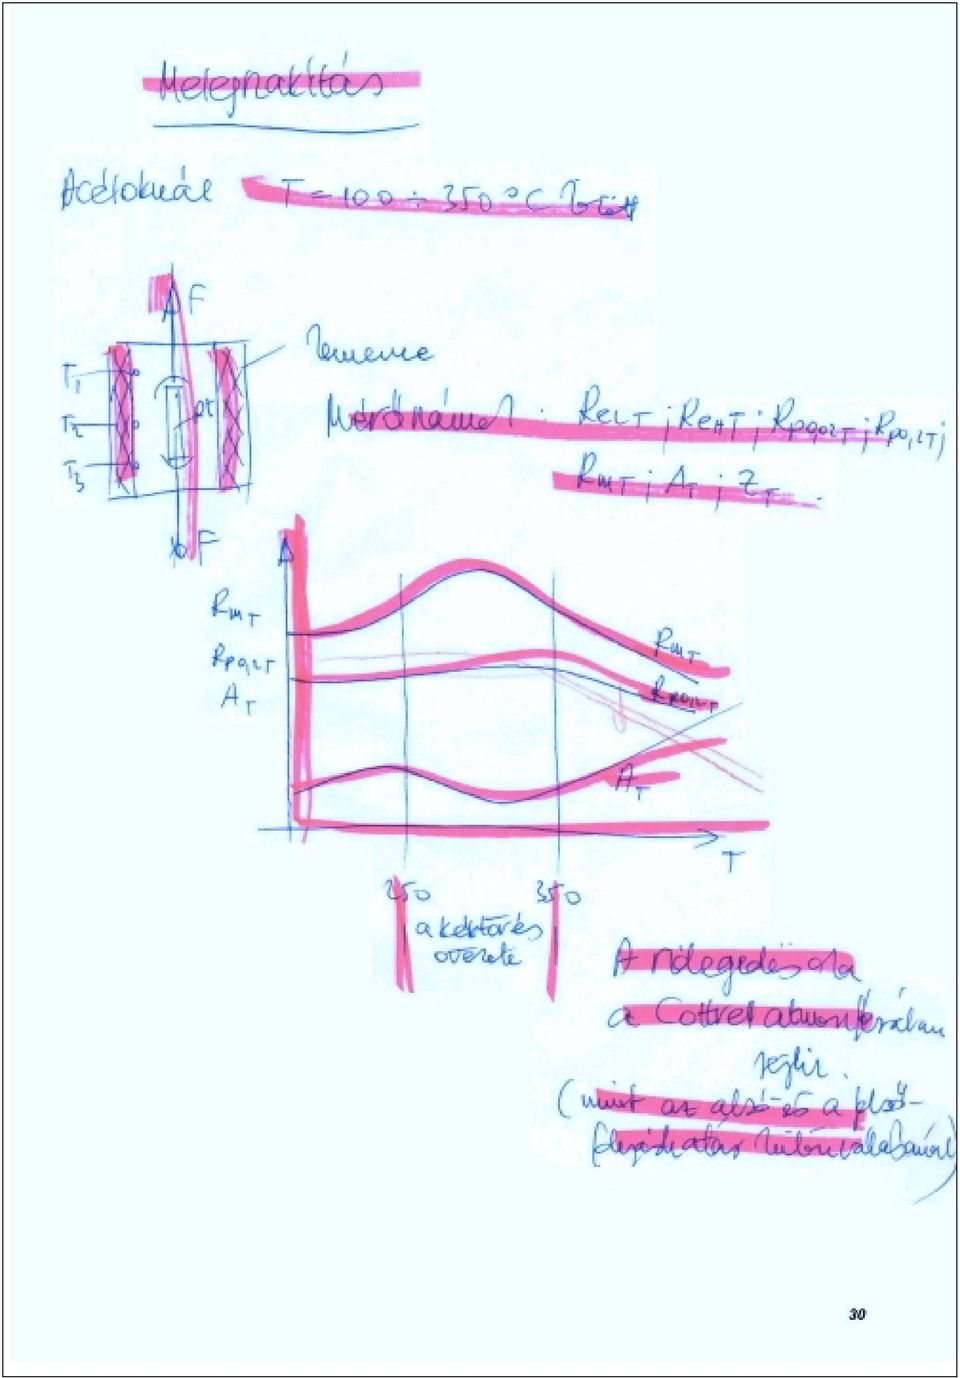 Melegszakítás
Acéloknál T = 100 ÷ 350 °C között
F
kemence
T1
T2
T3
pt
F
Mérőszámok: ReLT ; ReHT ; Rp0,02T ; Rp0,2T ;
RmT ; AT ; ZT .
RmT
Rp0,2T
AT
RmT
Rp0,2T
AT
T
250 350
a kéktörés
övezete
A ridegedés oka
a Cottrel atmoszférában
rejlik.
(mint az alsó- és a felső-
folyáshatár különválásánál)
30